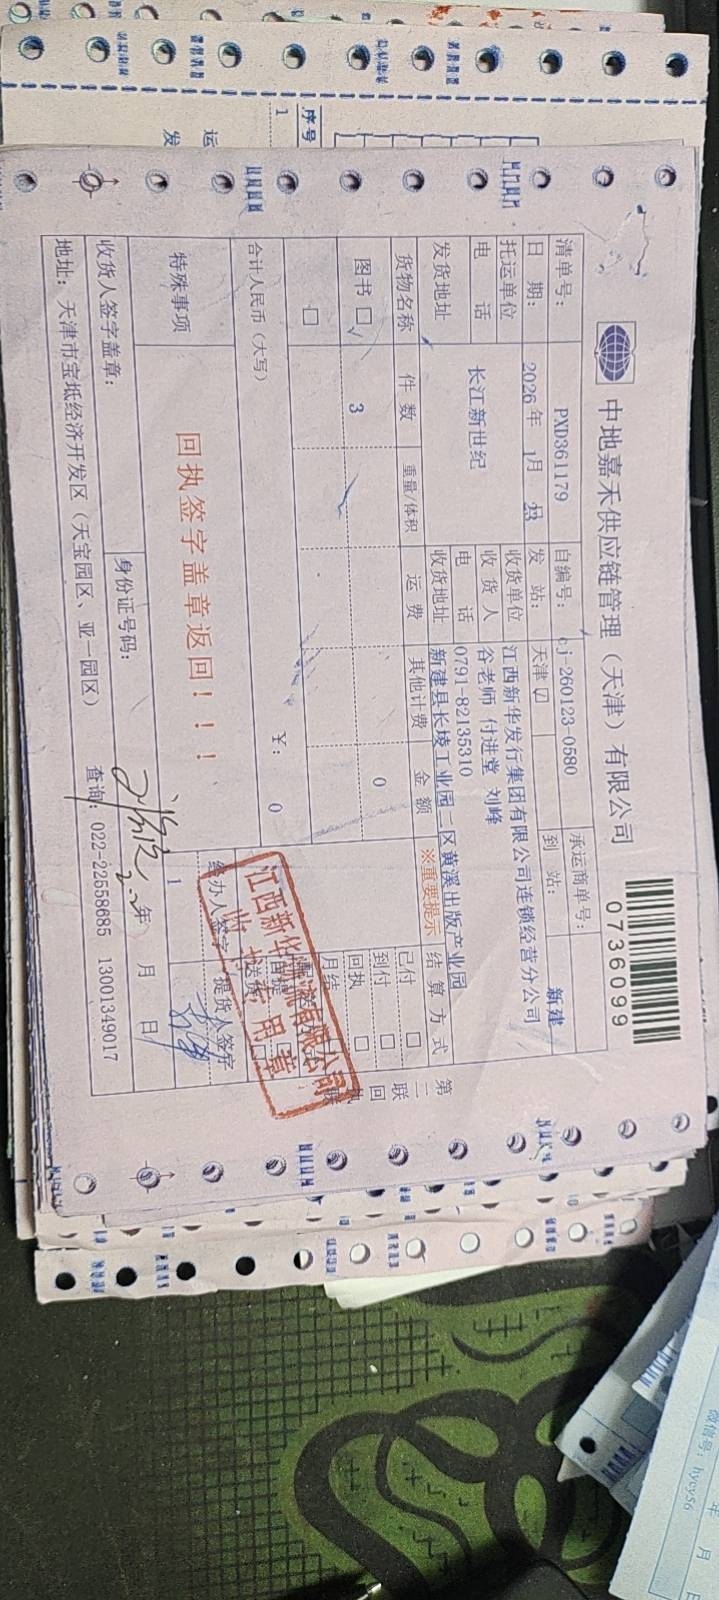 中地嘉禾供应链管理（天津）有限公司
0736099
清单号： PXD361179 自编号： cj-260123-0580 承运商单号：
日 期： 2026 年 1月 23 发 站： 天津 ☑ 到 站： 新建
托运单位 长江新世纪 收货单位 江西新华发行集团有限公司连锁经营分公司
收 货 人 谷老师 付进堂 刘峰
电 话 电 话 0791-82135310
发货地址 收货地址 新建县长堎工业园二区黄溪出版产业园
货物名称 件 数 重量/体积 运 费 其他计费 金 额 ※重要提示 结 算 方 式
图书 □ √ 3 0
□
已付 □
到付 □
回执 □
月结
合计人民币（大写） ￥： 0
特殊事项 回执签字盖章返回！！！ 1
经办人签字 提货人签字
收货人签字盖章： 身份证号码： 年 月 日
地址： 天津市宝坻经济开发区（天宝园区、亚一园区） 查询：022-22558685 13001349017
第二联 回执联
江西新华物流有限公司
专用章
序号
1
运
发
微信号：hycys6
年 月 日